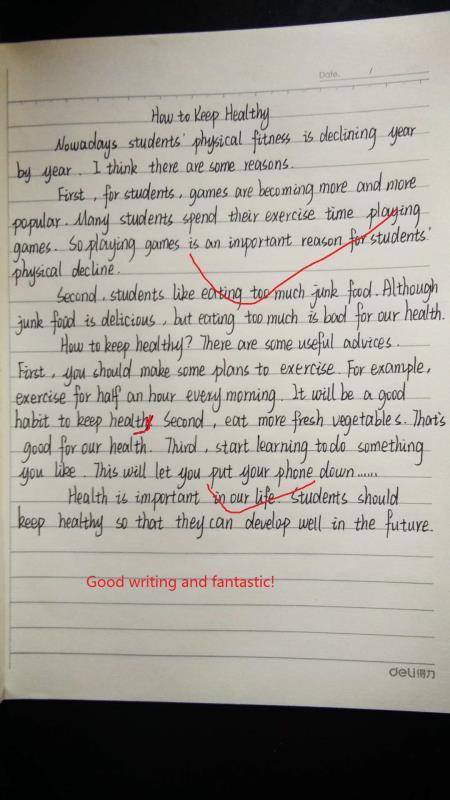 Date. /
How to Keep Healthy
Nowadays students' physical fitness is declining year
by year. I think there are some reasons.
First, for students, games are becoming more and more
popular. Many students spend their exercise time playing
games. So playing games is an important reason for students'
physical decline.
Second, students like eating too much junk food. Although
junk food is delicious, but eating too much is bad for our health.
How to keep healthy? There are some useful advices.
First, you should make some plans to exercise. For example,
exercise for half an hour every morning. It will be a good
habit to keep healthy. Second, eat more fresh vegetables. That's
good for our health. Third, start learning to do something
you like. This will let you put your phone down......
Health is important in our life. Students should
keep healthy so that they can develop well in the future.
Good writing and fantastic!
deli得力